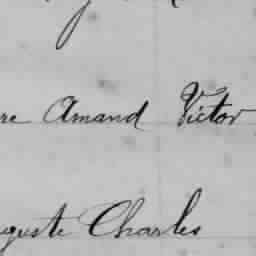 re Amand Victor
guste Charles